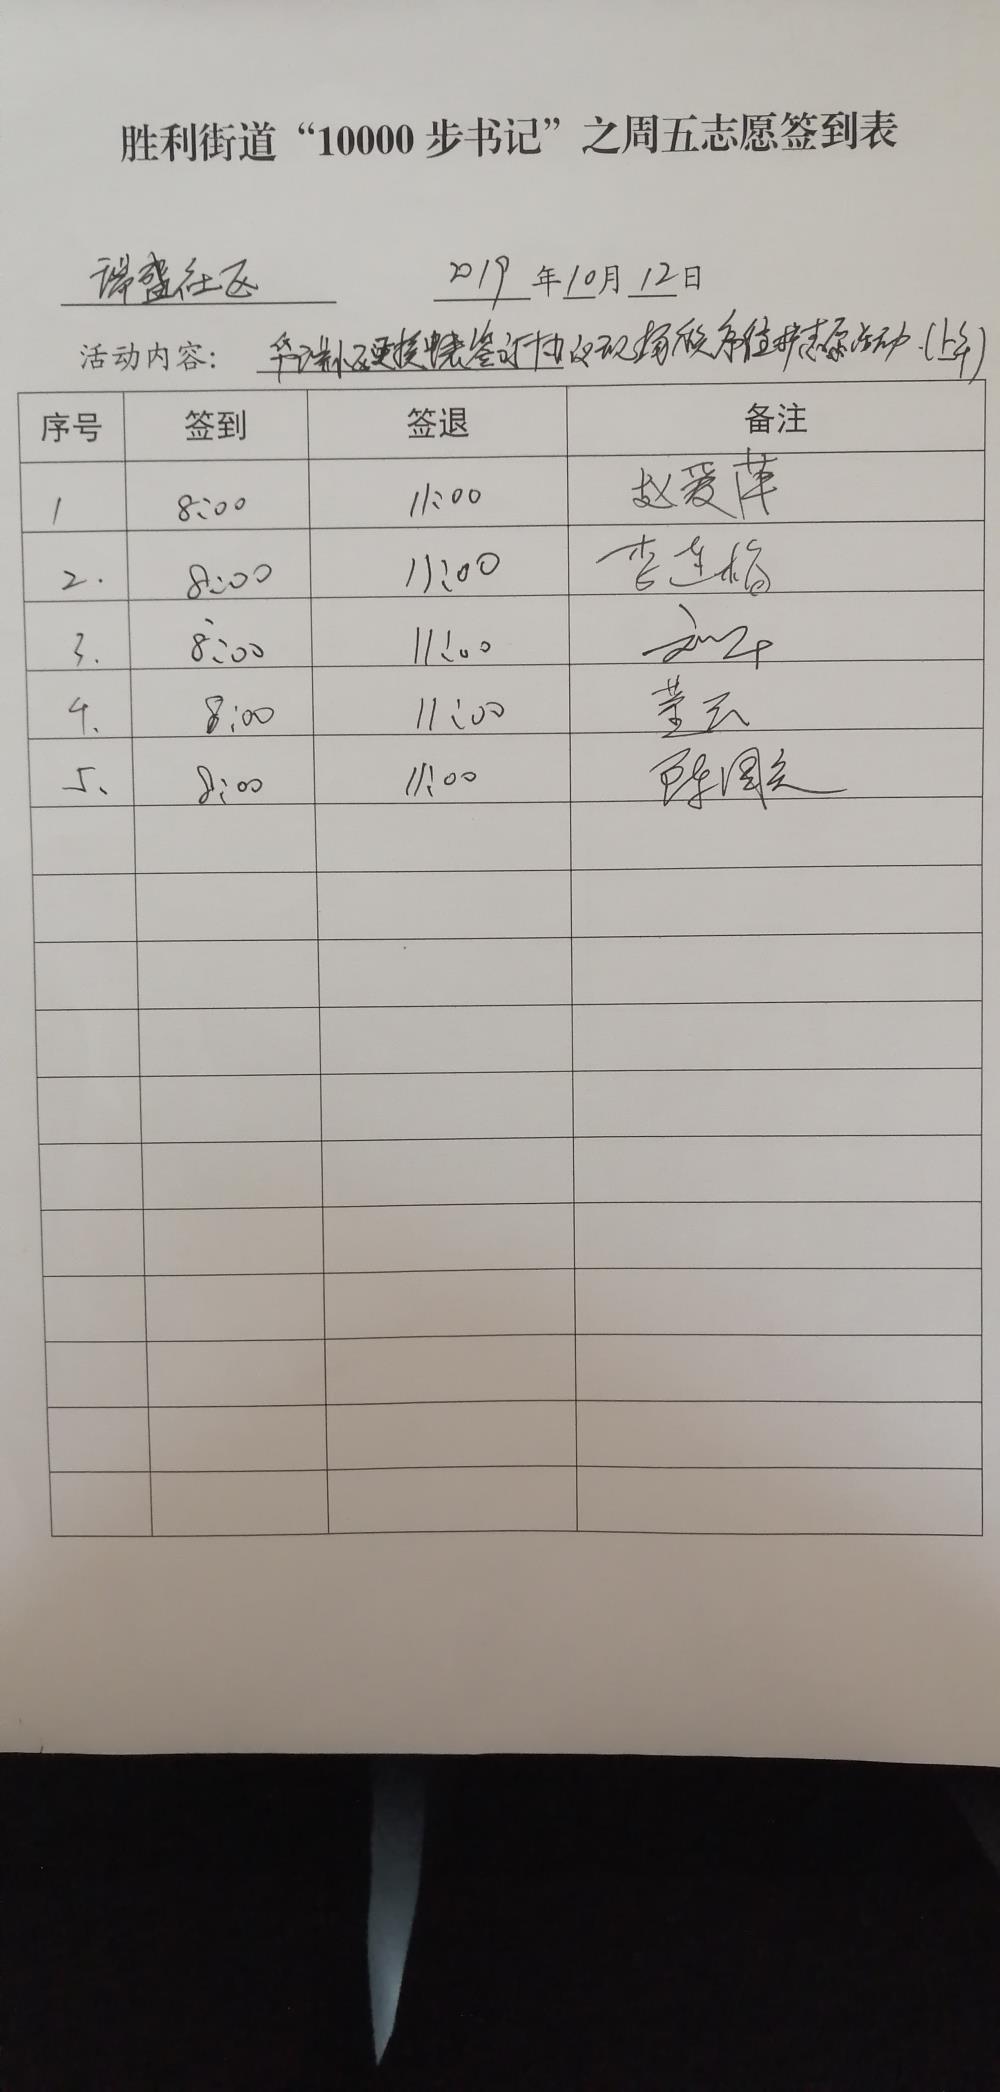 胜利街道“10000 步书记”之周五志愿签到表
瑞盛社区 2019 年 10 月 12 日
活动内容: 华瑞小区更换电表签订协议现场秩序维护志愿活动.(上午)
序号 签到 签退 备注
1 8:00 11:00 赵爱萍
2. 8:00 11:00 李连梅
3. 8:00 11:00
4. 8:00 11:00 董云
5、 8:00 11:00 陈国文